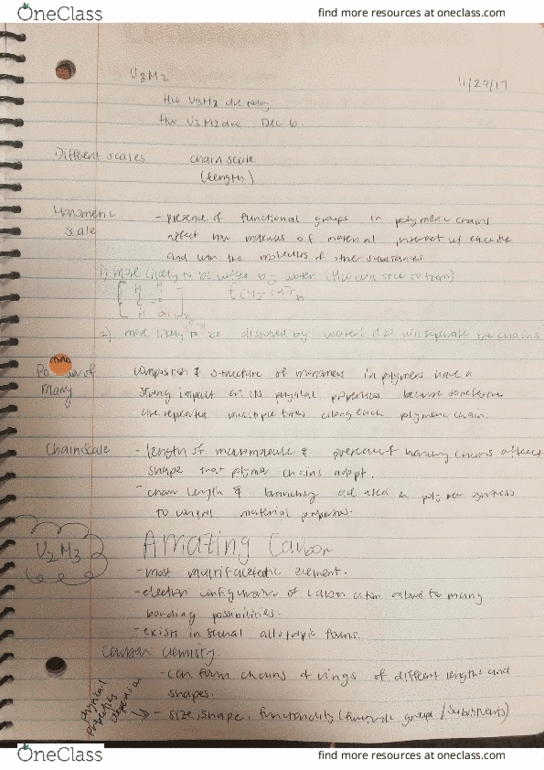 OneClass
find more resources at oneclass.com
U3M2
11/29/17
Hw U3M2 due today
Hw U3M2 due Dec 6.
Different scales
chain scale
(length)
Monomeric
scale
- presence of functional groups in polymeric chains
affect how molecules of material interact w/ each other
and w/ the molecules of other substances
1) more likely to be by water
2) more likely to be dissolved by water separate the chains
Power of
many
composition & structure of monomers in polymers have a
strong impact on its physical properties because
are repeated multiple times along each polymeric chain.
Chain Scale
- length of macromolecule & branching chains affect
shape that polymer chains adopt.
- chain length & branching are used in polymer synthesis
to control material properties.
U2M3
Amazing Carbon
- most multifaceted element.
- electron configuration of carbon atom to many
bonding possibilities.
- exists in several allotropic forms.
Carbon Chemistry
- can form chains & rings of different lengths and
shapes.
physical
properties
depend on
- size, shape, functionality (functional groups / substituents)
OneClass
find more resources at oneclass.com